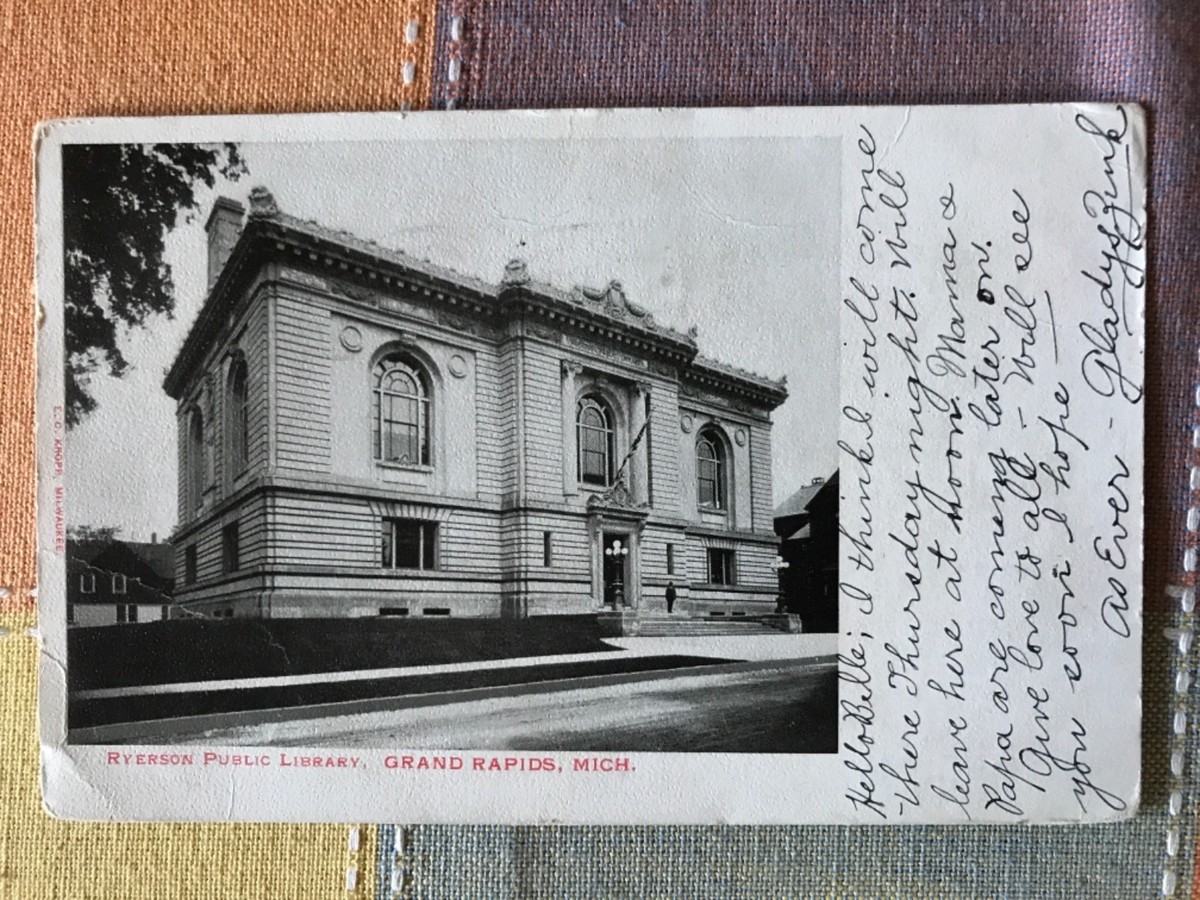 E. C. KROPP, MILWAUKEE.
RYERSON PUBLIC LIBRARY, GRAND RAPIDS, MICH.
Hello Belle; I think will come
there Thursday night. Will
leave here at noon. Mama &
Papa are coming later on.
Give love to all - Will see
you soon I hope
As Ever - Gladys Zunk